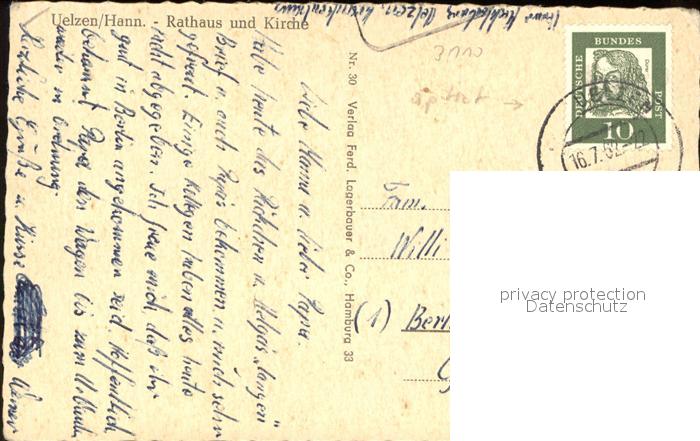 Uelzen/Hann. - Rathaus und Kirche
Liebe Mama u. lieber Papa.
Habe heute das Päckchen u. Helgas „langen"
Brief u. auch Papis bekommen u. mich sehr
gefreut. Einige Kollegen haben alles heute
nicht abgegeben. Ich freue mich, daß ihr
gut in Berlin angekommen seid. Hoffentlich
bekommt Papa den Wagen bis zum Urlaub
wieder in Ordnung.
Herzliche Grüße u. Küsse
Werner
Nr. 30 Verlag Ferd. Lagerbauer & Co., Hamburg 33
3110
DEUTSCHE
BUNDES
POST
Dürer
10
16.7.62.-22
Fam.
Willi
(1) Berl
privacy protection
Datenschutz